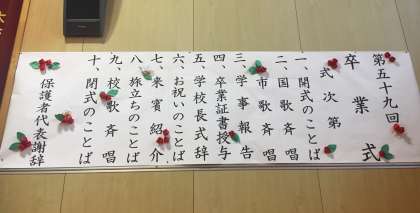 第五十九回
卒業式
式次第
一、開式のことば
二、国歌斉唱
市歌斉唱
三、学事報告
四、卒業証書授与
五、学校長式辞
六、お祝いのことば
七、来賓紹介
八、旅立ちのことば
九、校歌斉唱
十、閉式のことば
保護者代表謝辞